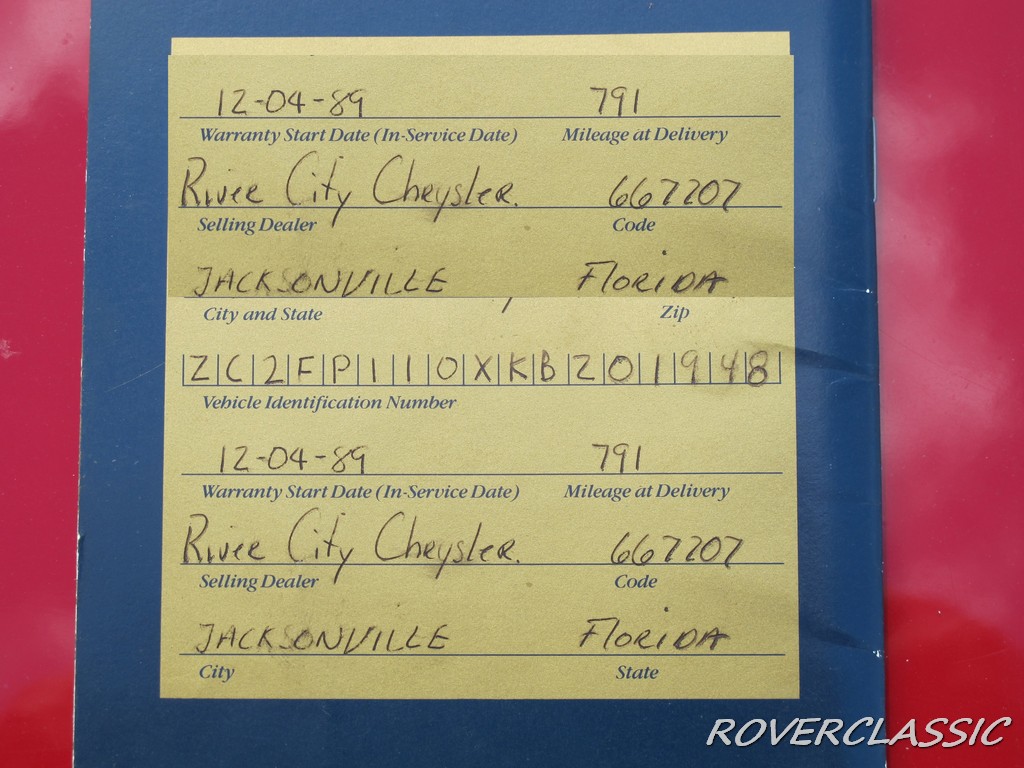 12-04-89 791
Warranty Start Date (In-Service Date) Mileage at Delivery
River City Chrysler. 667207
Selling Dealer Code
JACKSONVILLE FLORIDA
City and State Zip
ZC2FP110XKB201948
Vehicle Identification Number
12-04-89 791
Warranty Start Date (In-Service Date) Mileage at Delivery
River City Chrysler. 667207
Selling Dealer Code
JACKSONVILLE FLORIDA
City State
ROVERCLASSIC